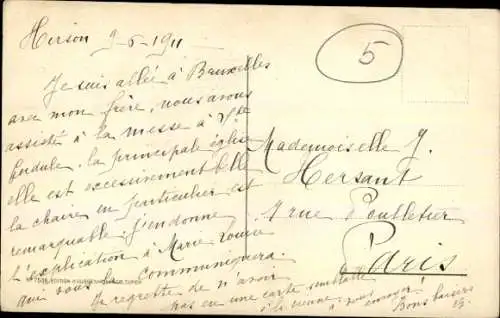 Hirson 9-6-1911
5
Je suis allée à Bruxelles
avec mon frère, nous avons
assisté à la messe à Ste
Gudule, la principale église
elle est excessivement belle
la chaire en particulier est
remarquable. J'en donne
l'explication à Marie Louise
qui vous la communiquera.
Je regrette de n'avoir
pas eu une carte semblable
à la sienne, à vous envoyer
Bons baisers
Mademoiselle J.
Hersant
rue Poulletier
Paris